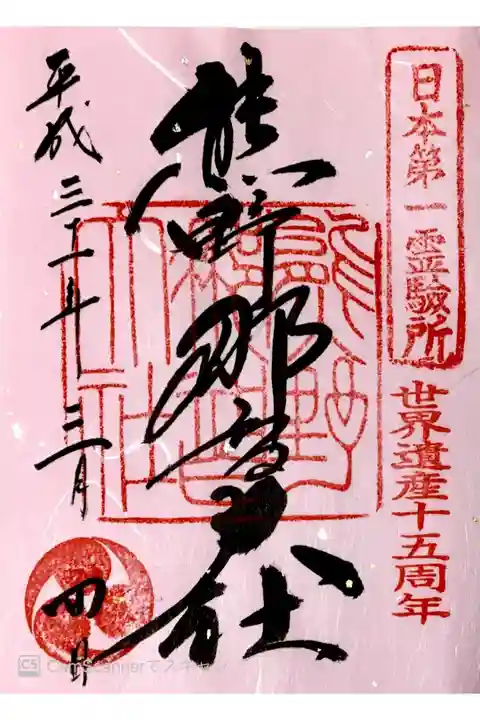 日本第一霊験所
世界遺産十五周年
熊野那智大社
平成三十一年三月四日
CS CamScannerでスキャン